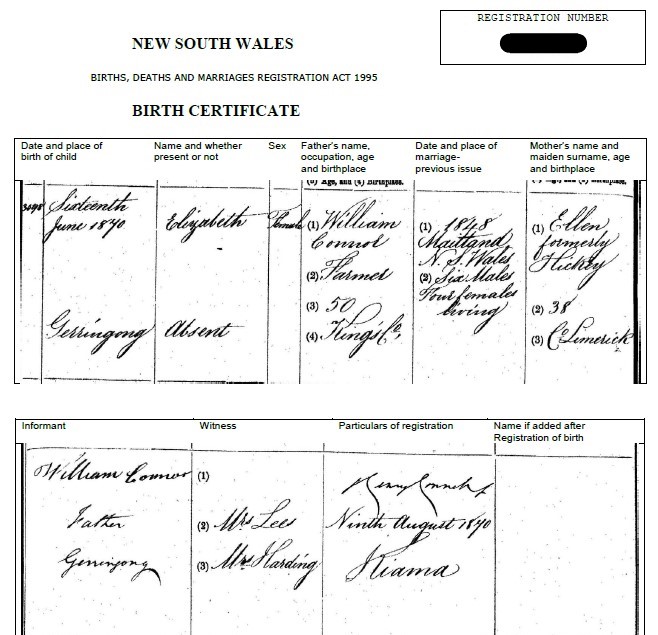 REGISTRATION NUMBER
NEW SOUTH WALES
BIRTHS, DEATHS AND MARRIAGES REGISTRATION ACT 1995
BIRTH CERTIFICATE
Date and place of
birth of child
Name and whether
present or not
Sex
Father's name,
occupation, age
and birthplace
Date and place of
marriage-
previous issue
Mother's name and
maiden surname, age
and birthplace
Sixteenth
June 1870
Gerringong
Elizabeth
Absent
Female
(1) William
Connor
(2) Farmer
(3) 50
(4) Kings Co,
(1) 1848
Maitland
N. S. Wales
(2) Six Males
Four females
living
(1) Ellen
formerly
Hickey
(2) 38
(3) Co Limerick
Informant
Witness
Particulars of registration
Name if added after
Registration of birth
William Connor
Father
Gerringong
(1)
(2) Mrs Lees
(3) Mrs Harding
Henry
Ninth August 1870
Kiama